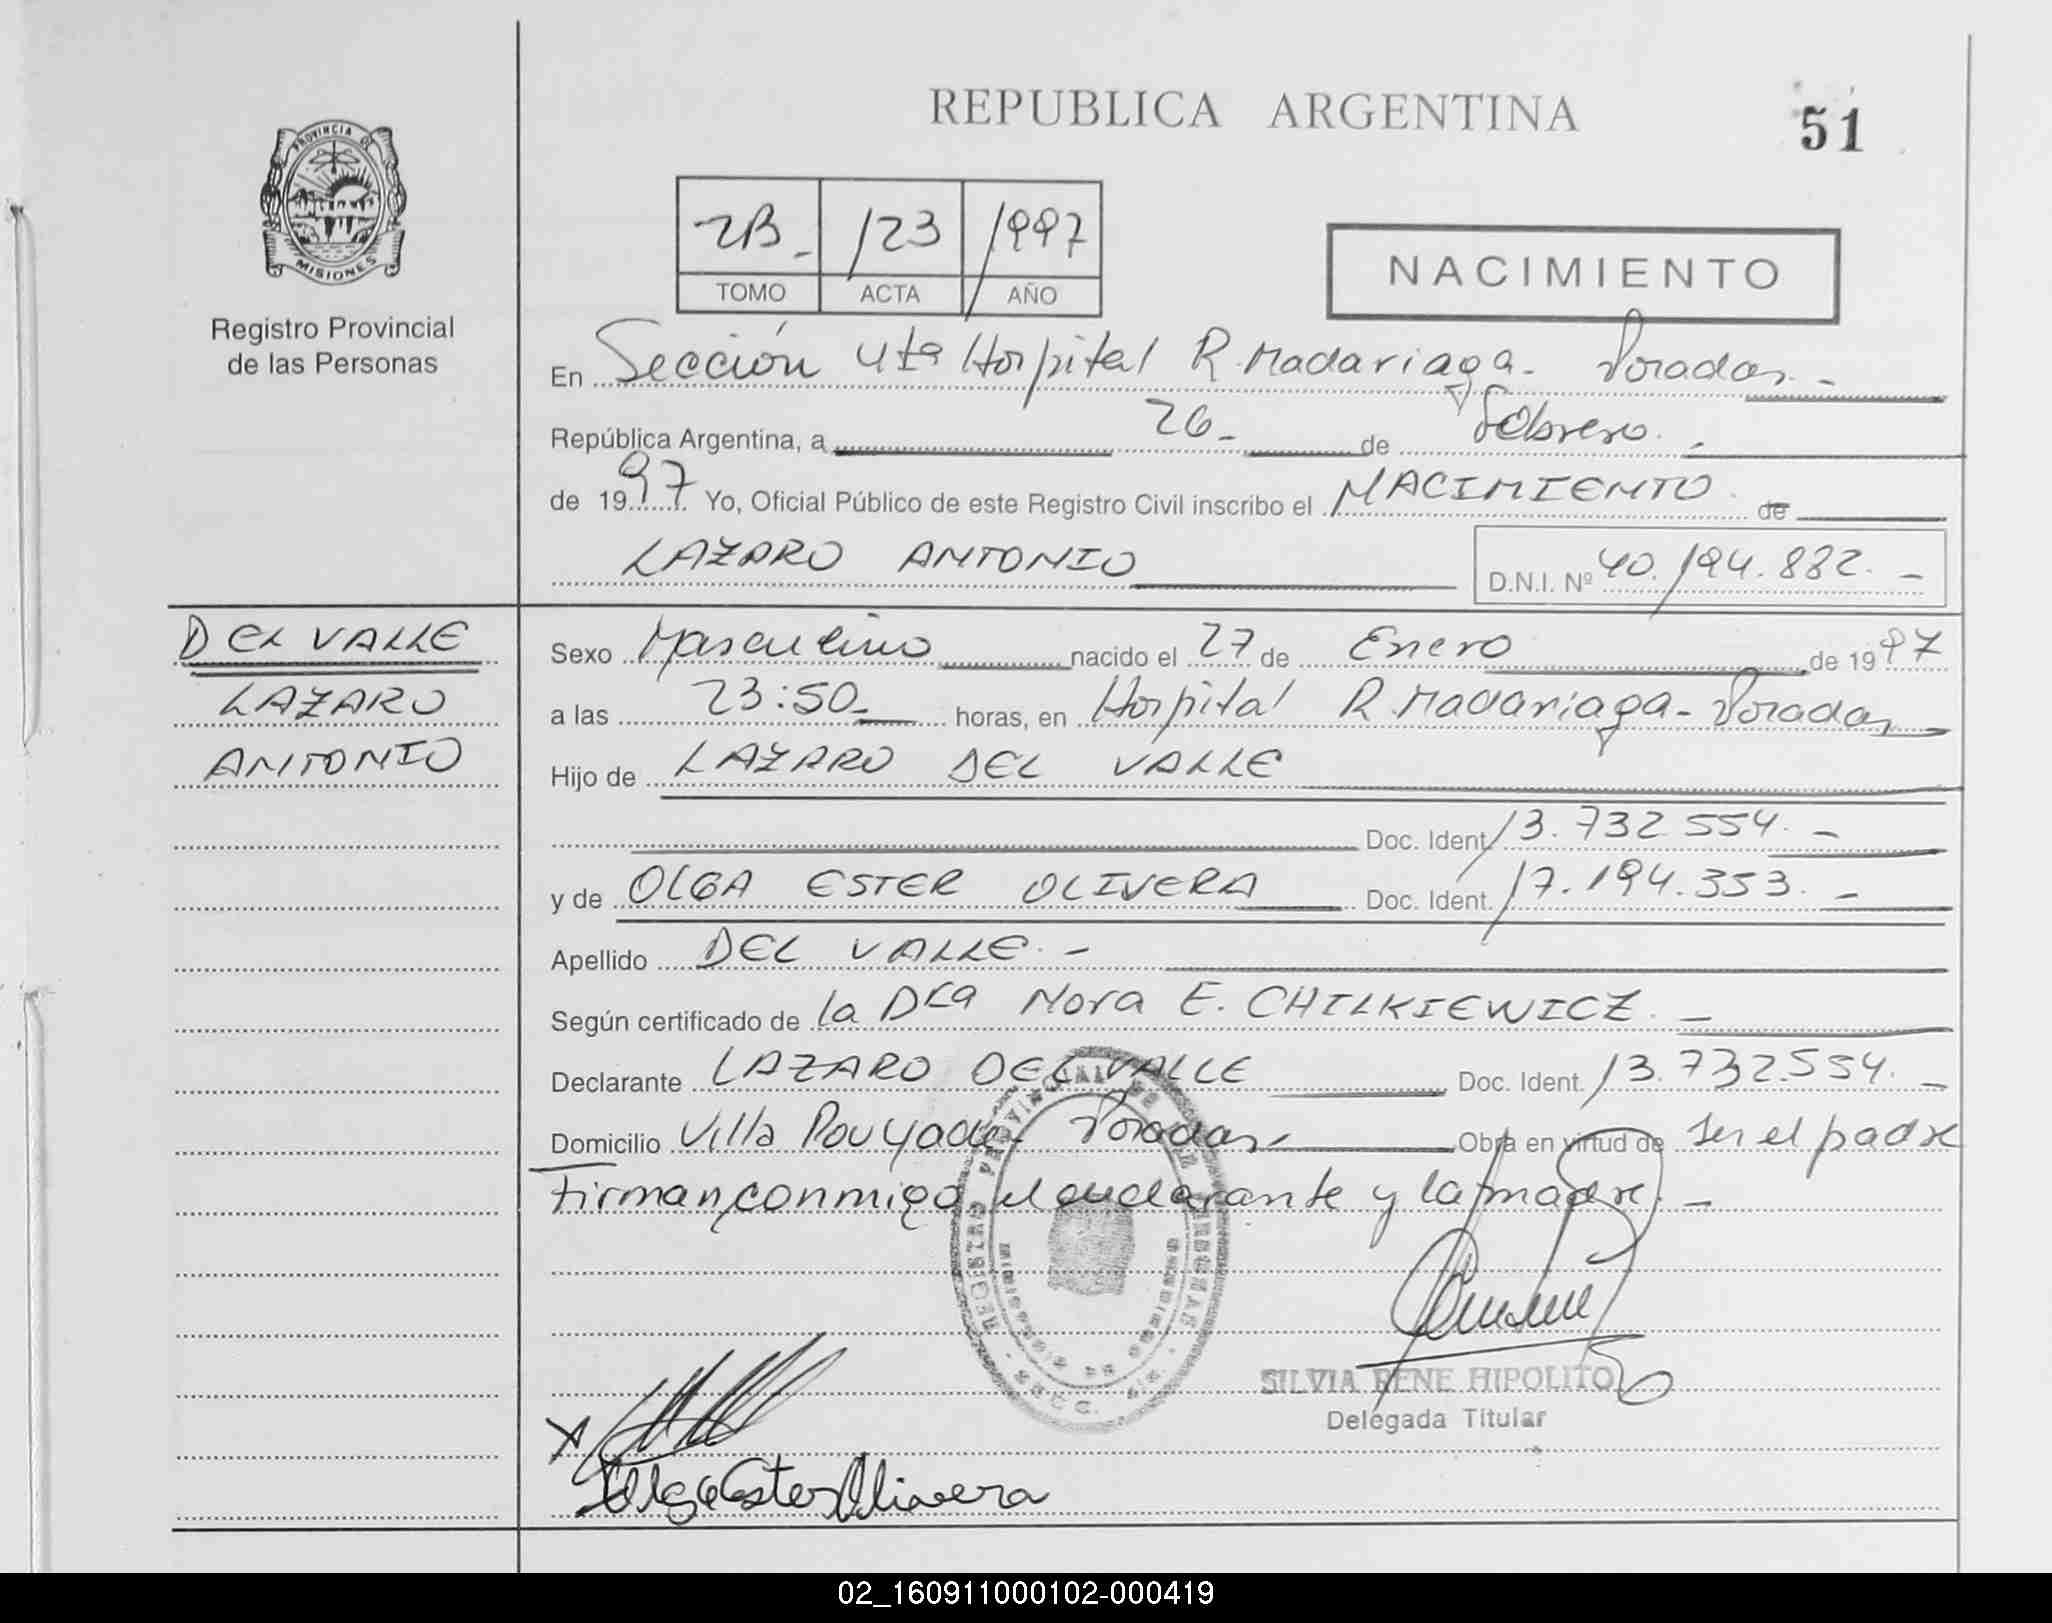 REPUBLICA ARGENTINA
51
PROVINCIA DE
MISIONES
Registro Provincial
de las Personas
2B- 123 1997
TOMO ACTA AÑO
NACIMIENTO
En Sección 4ta Hospital R. Madariaga - Posadas. -
República Argentina, a 26- de Febrero. -
de 1997 Yo, Oficial Público de este Registro Civil inscribo el NACIMIENTO. de
LAZARO ANTONIO
D.N.I. Nº 40.194.882. -
DEL VALLE
LAZARO
ANTONIO
Sexo Masculino nacido el 27 de Enero de 1997
a las 23:50- horas, en Hospital R. Madariaga - Posadas -
Hijo de LAZARO DEL VALLE
Doc. Ident. 13.732.554. -
y de OLGA ESTER OLIVERA Doc. Ident. 17.194.353. -
Apellido DEL VALLE. -
Según certificado de la Dra Nora E. CHILKIEWICZ. -
Declarante LAZARO DEL VALLE Doc. Ident. 13.732.554. -
Domicilio Villa Pouyade - Posadas - Obra en virtud de ser el padre
Firman conmigo el declarante y la madre. -
REGISTRO PROVINCIAL DE LAS PERSONAS
SILVIA RENE HIPOLITO
Delegada Titular
Olga Ester Olivera
02_160911000102-000419